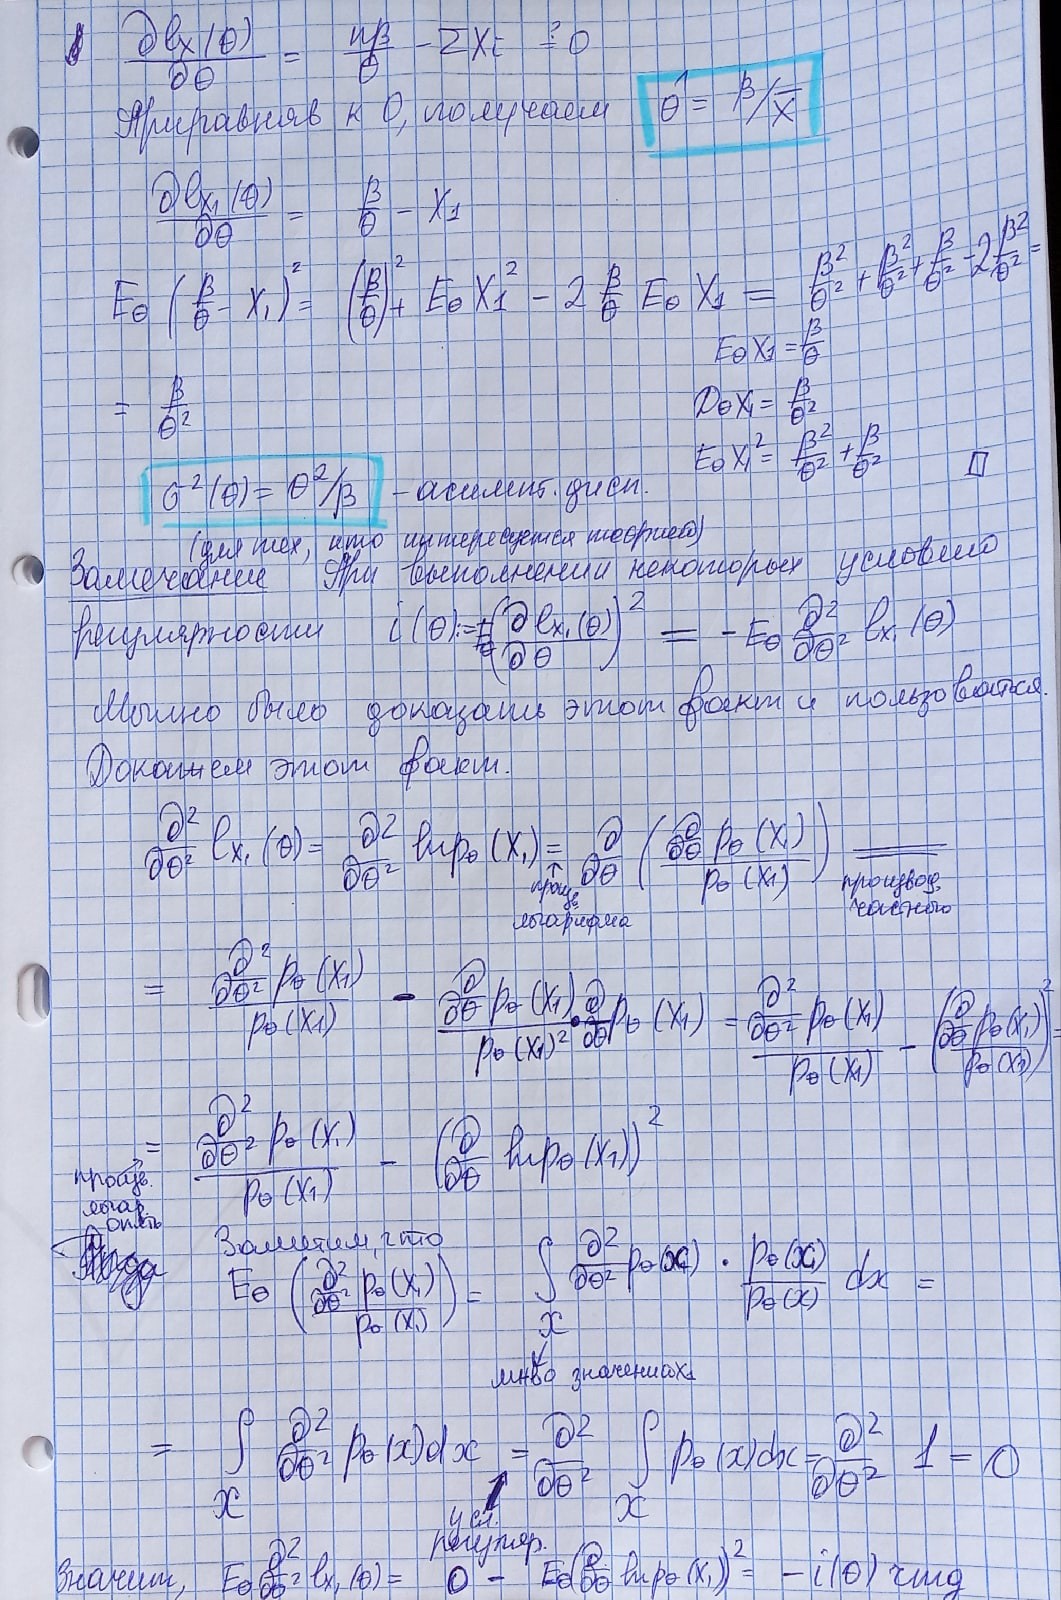 ∂l_X(θ)/∂θ = nβ/θ - ΣXi = 0
Приравняв к 0, получаем θ̂ = β/X̄
∂l_X₁(θ)/∂θ = β/θ - X₁
E_θ(β/θ - X₁)² = (β/θ)² + E_θ X₁² - 2 β/θ E_θ X₁ = β²/θ² + β²/θ² + β/θ² - 2β²/θ² =
E_θ X₁ = β/θ
= β/θ²
D_θ X₁ = β/θ²
E_θ X₁² = β²/θ² + β/θ² □
σ²(θ) = θ²/β - асимпт. дисп.
(для тех, кто интересуется теорией)
Замечание При выполнении некоторых условий
регулярности i(θ) := E_θ(∂l_X₁(θ)/∂θ)² = - E_θ ∂²/∂θ² l_X₁(θ)
Можно было доказать этот факт и пользоваться.
Докажем этот факт.
∂²/∂θ² l_X₁(θ) = ∂²/∂θ² ln p_θ(X₁) = ∂/∂θ (∂/∂θ p_θ(X₁) / p_θ(X₁)) =
↑ произв. логарифма
производ. частного
= ∂²/∂θ² p_θ(X₁) / p_θ(X₁) - ∂/∂θ p_θ(X₁) / p_θ(X₁)² · ∂/∂θ p_θ(X₁) = ∂²/∂θ² p_θ(X₁) / p_θ(X₁) - (∂/∂θ p_θ(X₁) / p_θ(X₁))² =
= ∂²/∂θ² p_θ(X₁) / p_θ(X₁) - (∂/∂θ ln p_θ(X₁))²
произв.
логар.
опять
Заметим, что
E_θ(∂²/∂θ² p_θ(X₁) / p_θ(X₁)) = ∫_X ∂²/∂θ² p_θ(x) · p_θ(x)/p_θ(x) dx =
мн-во значений X₁
= ∫_X ∂²/∂θ² p_θ(x)dx = ∂²/∂θ² ∫_X p_θ(x)dx = ∂²/∂θ² 1 = 0
усл.
регуляр.
Значит, E_θ ∂²/∂θ² l_X₁(θ) = 0 - E_θ(∂/∂θ ln p_θ(X₁))² = - i(θ) чтд